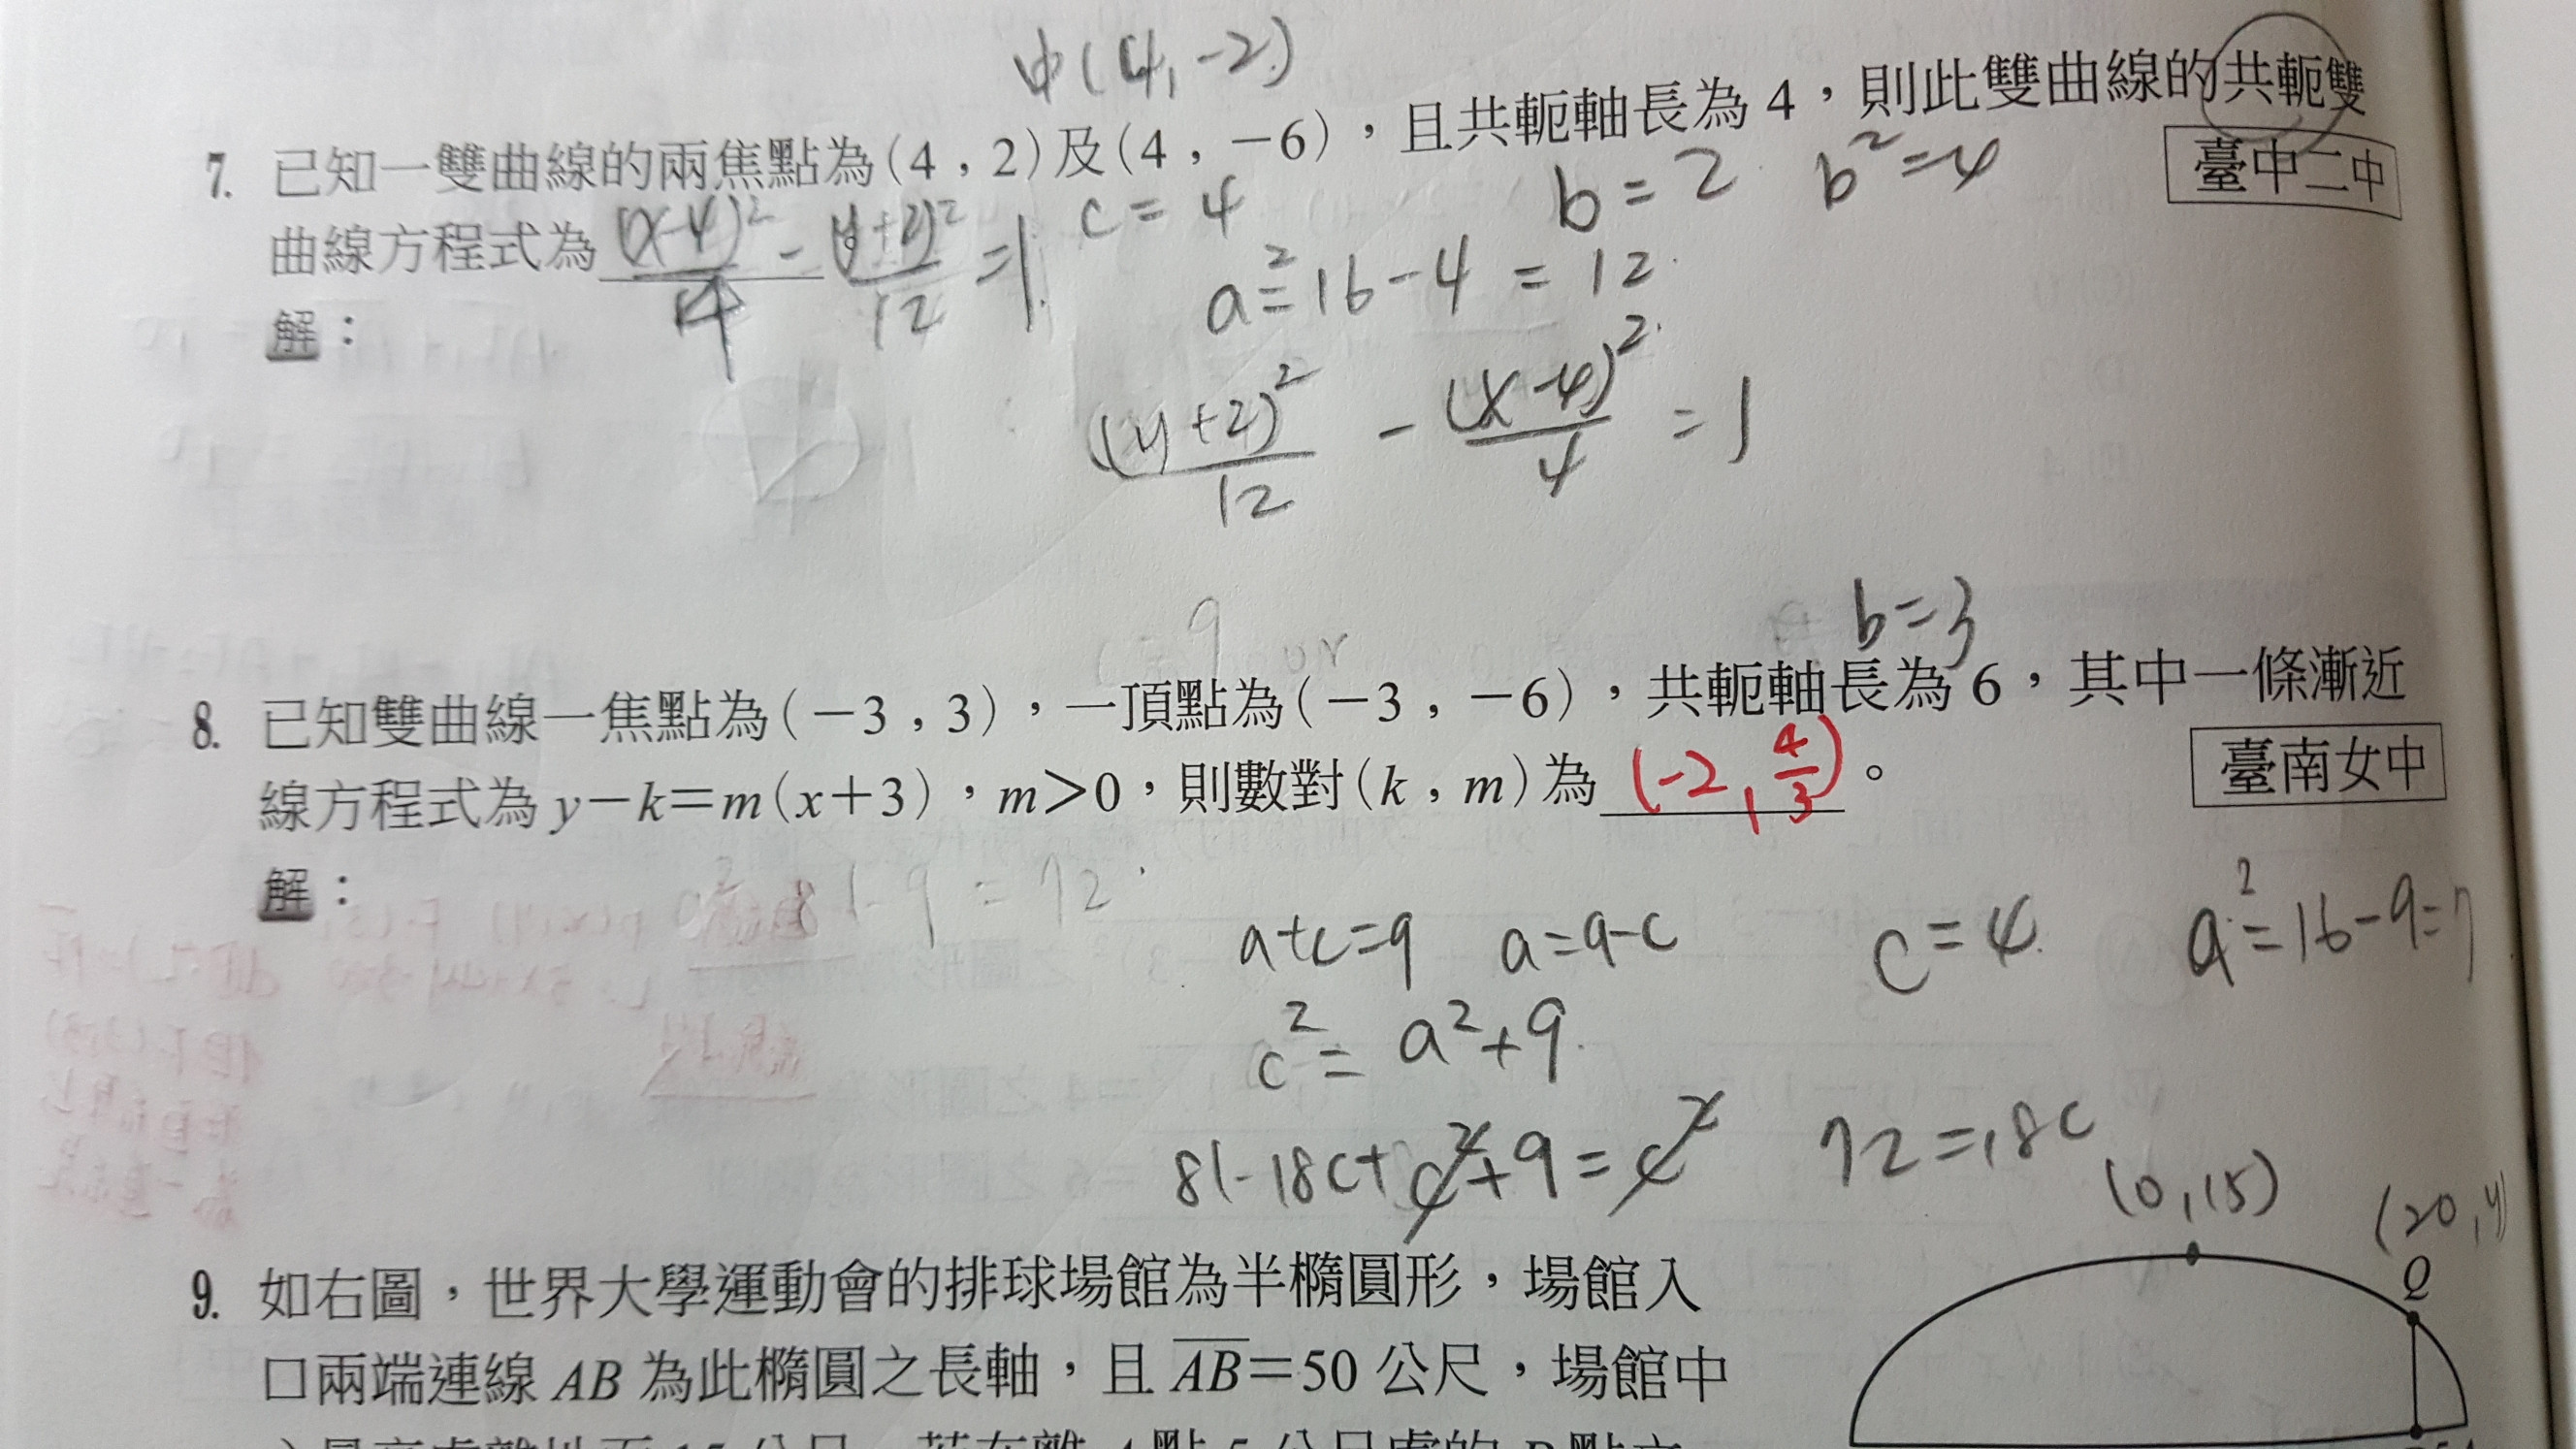 中(4,-2)
7. 已知一雙曲線的兩焦點為(4,2)及(4,-6),且共軛軸長為4,則此雙曲線的共軛雙
臺中二中
c=4 b=2 b²=4
曲線方程式為 (x-4)²/4 - (y+2)²/12 =1
a²=16-4=12
解:
(y+2)²/12 - (x-4)²/4 =1
b=3
8. 已知雙曲線一焦點為(-3,3),一頂點為(-3,-6),共軛軸長為6,其中一條漸近
線方程式為 y-k=m(x+3),m>0,則數對(k,m)為 (-2,4/3)。
臺南女中
解:
a+c=9 a=9-c c=4 a²=16-9=7
c²=a²+9
81-18c+c²+9=c² 72=18c
(0,15)
(20,y)
Q
9. 如右圖,世界大學運動會的排球場館為半橢圓形,場館入
口兩端連線 AB 為此橢圓之長軸,且 AB=50 公尺,場館中